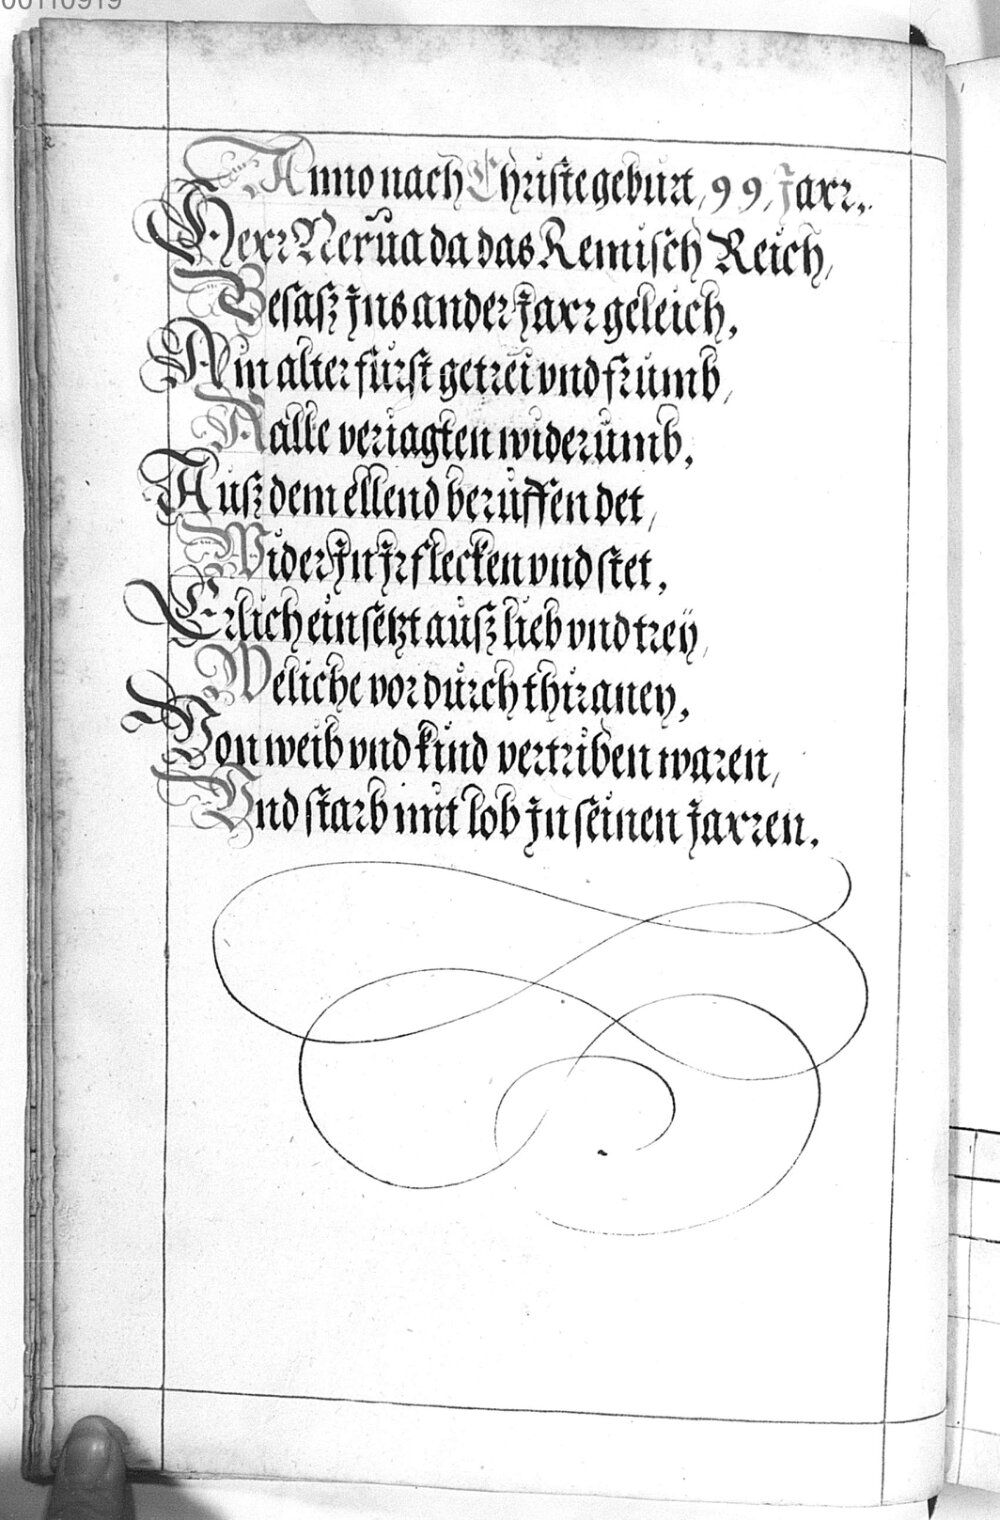 00110919
Anno nach Christe geburt, 99, Jaxr,.
Hexr Nerŭa da das Remisch Reich,
Besasz Jns ander Jaxr geleich,
Ain alter fŭrst getrei vnd frŭmb,
Aalle veriagten widerŭmb,
Aŭsz dem ellend berŭffen det,
Wider Jn Jr flecken vnd stet,
Erlich einsetzt aŭsz lieb vnd treÿ,
Weliche vor dŭrch thiraney,
Von weib vnd kind vertriben waren,
Vnd starb mit lob Jn seinen Jaxren.